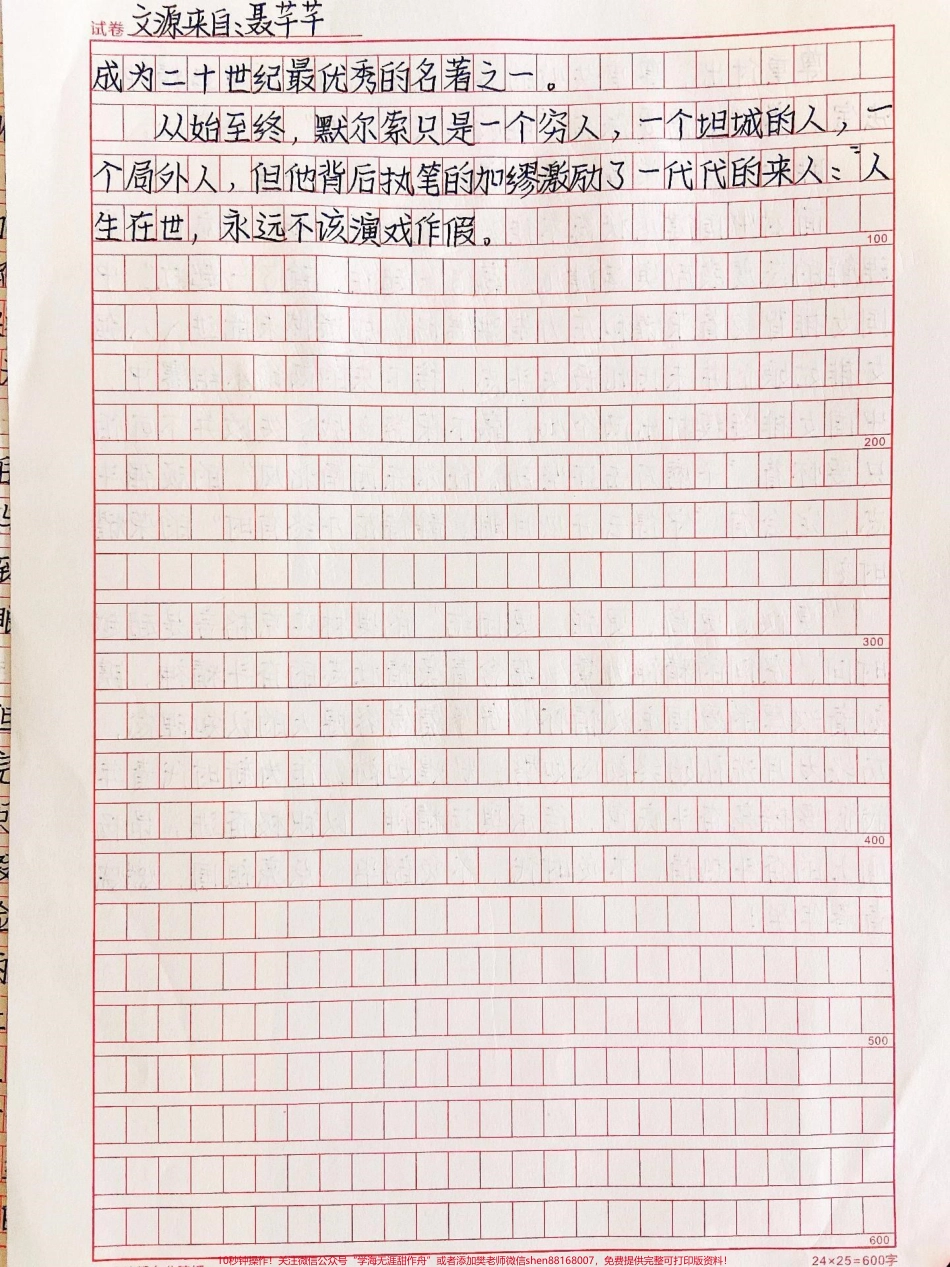 试卷 文源来自:聂芊芊
成为二十世纪最优秀的名著之一。
从始至终，默尔索只是一个穷人，一个坦城的人，一
个局外人，但他背后执笔的加缪激励了一代代的来人："人
生在世，永远不该演戏作假。
100
200
300
400
500
600
10秒钟操作！关注微信公众号“学海无涯甜作舟”或者添加樊老师微信shen88168007，免费提供完整可打印版资料！
24×25=600字